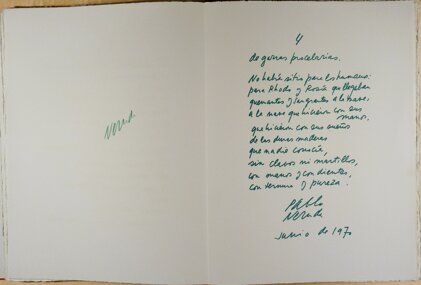 Neruda
4
de garras procelarias.
No había sitio para los humanos:
para Rhodo y Rosía que llegaban
quemantes y sangrantes a la nave,
a la nave que hicieron con sus
manos,
que hicieron con sus sueños
de las duras maderas
que nadie conocía,
sin clavos ni martillos,
con manos y con dientes,
con ternura y pureza.
Pablo
Neruda
Junio de 1970